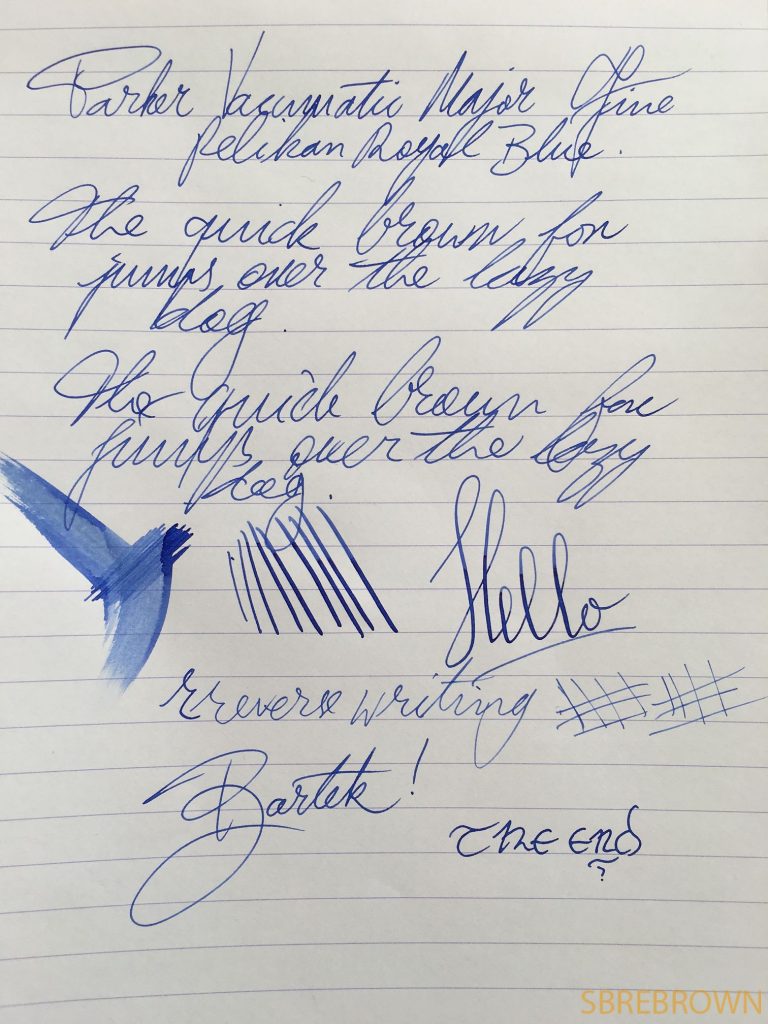 Parker Vacumatic Major Fine
Pelikan Royal Blue.
The quick brown fox
jumps over the lazy
dog.
The quick brown fox
jumps over the lazy
dog.
Hello
rreverse writing
Bartek!
THE END
?
SBREBROWN